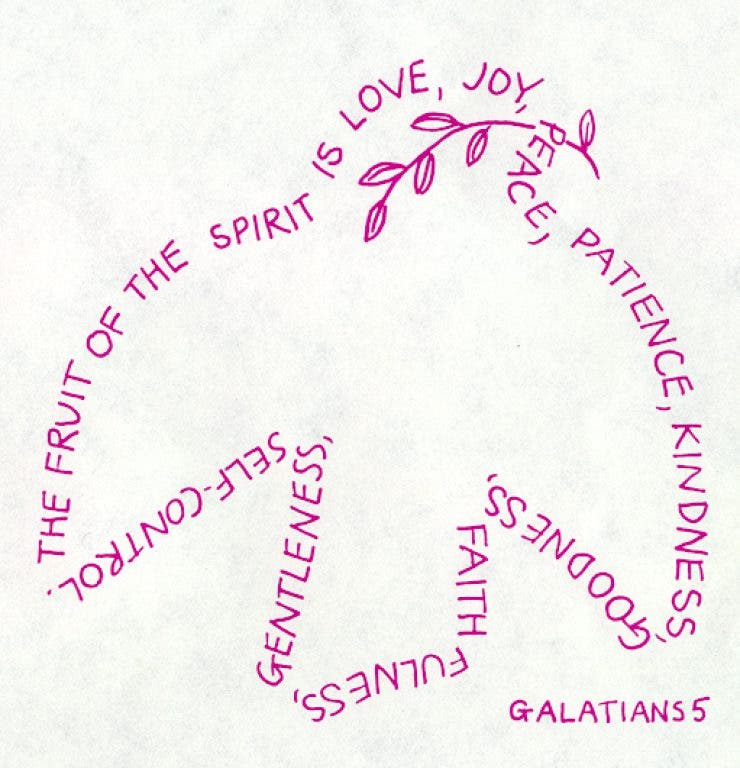 THE FRUIT OF THE SPIRIT IS LOVE, JOY, PEACE, PATIENCE, KINDNESS, GOODNESS, FAITHFULNESS, GENTLENESS, SELF-CONTROL.
GALATIANS 5